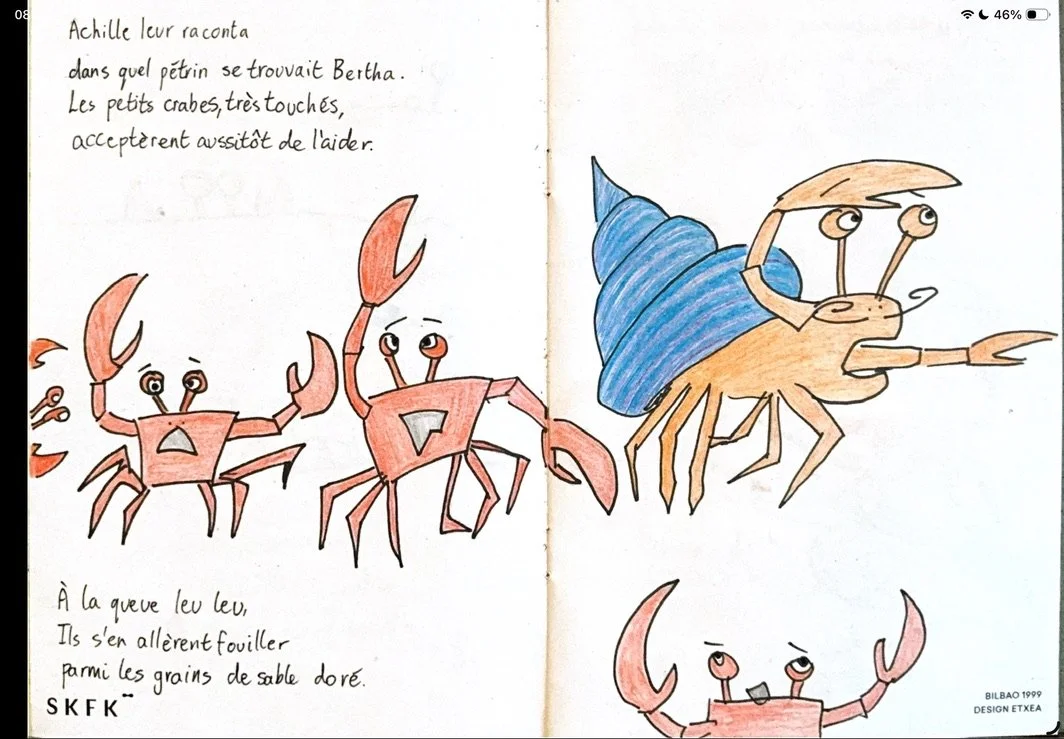 08
46%
Achille leur raconta
dans quel pétrin se trouvait Bertha.
Les petits crabes, très touchés,
acceptèrent aussitôt de l'aider.
À la queue leu leu,
Ils s'en allèrent fouiller
parmi les grains de sable doré.
SKFK
BILBAO 1999
DESIGN ETXEA